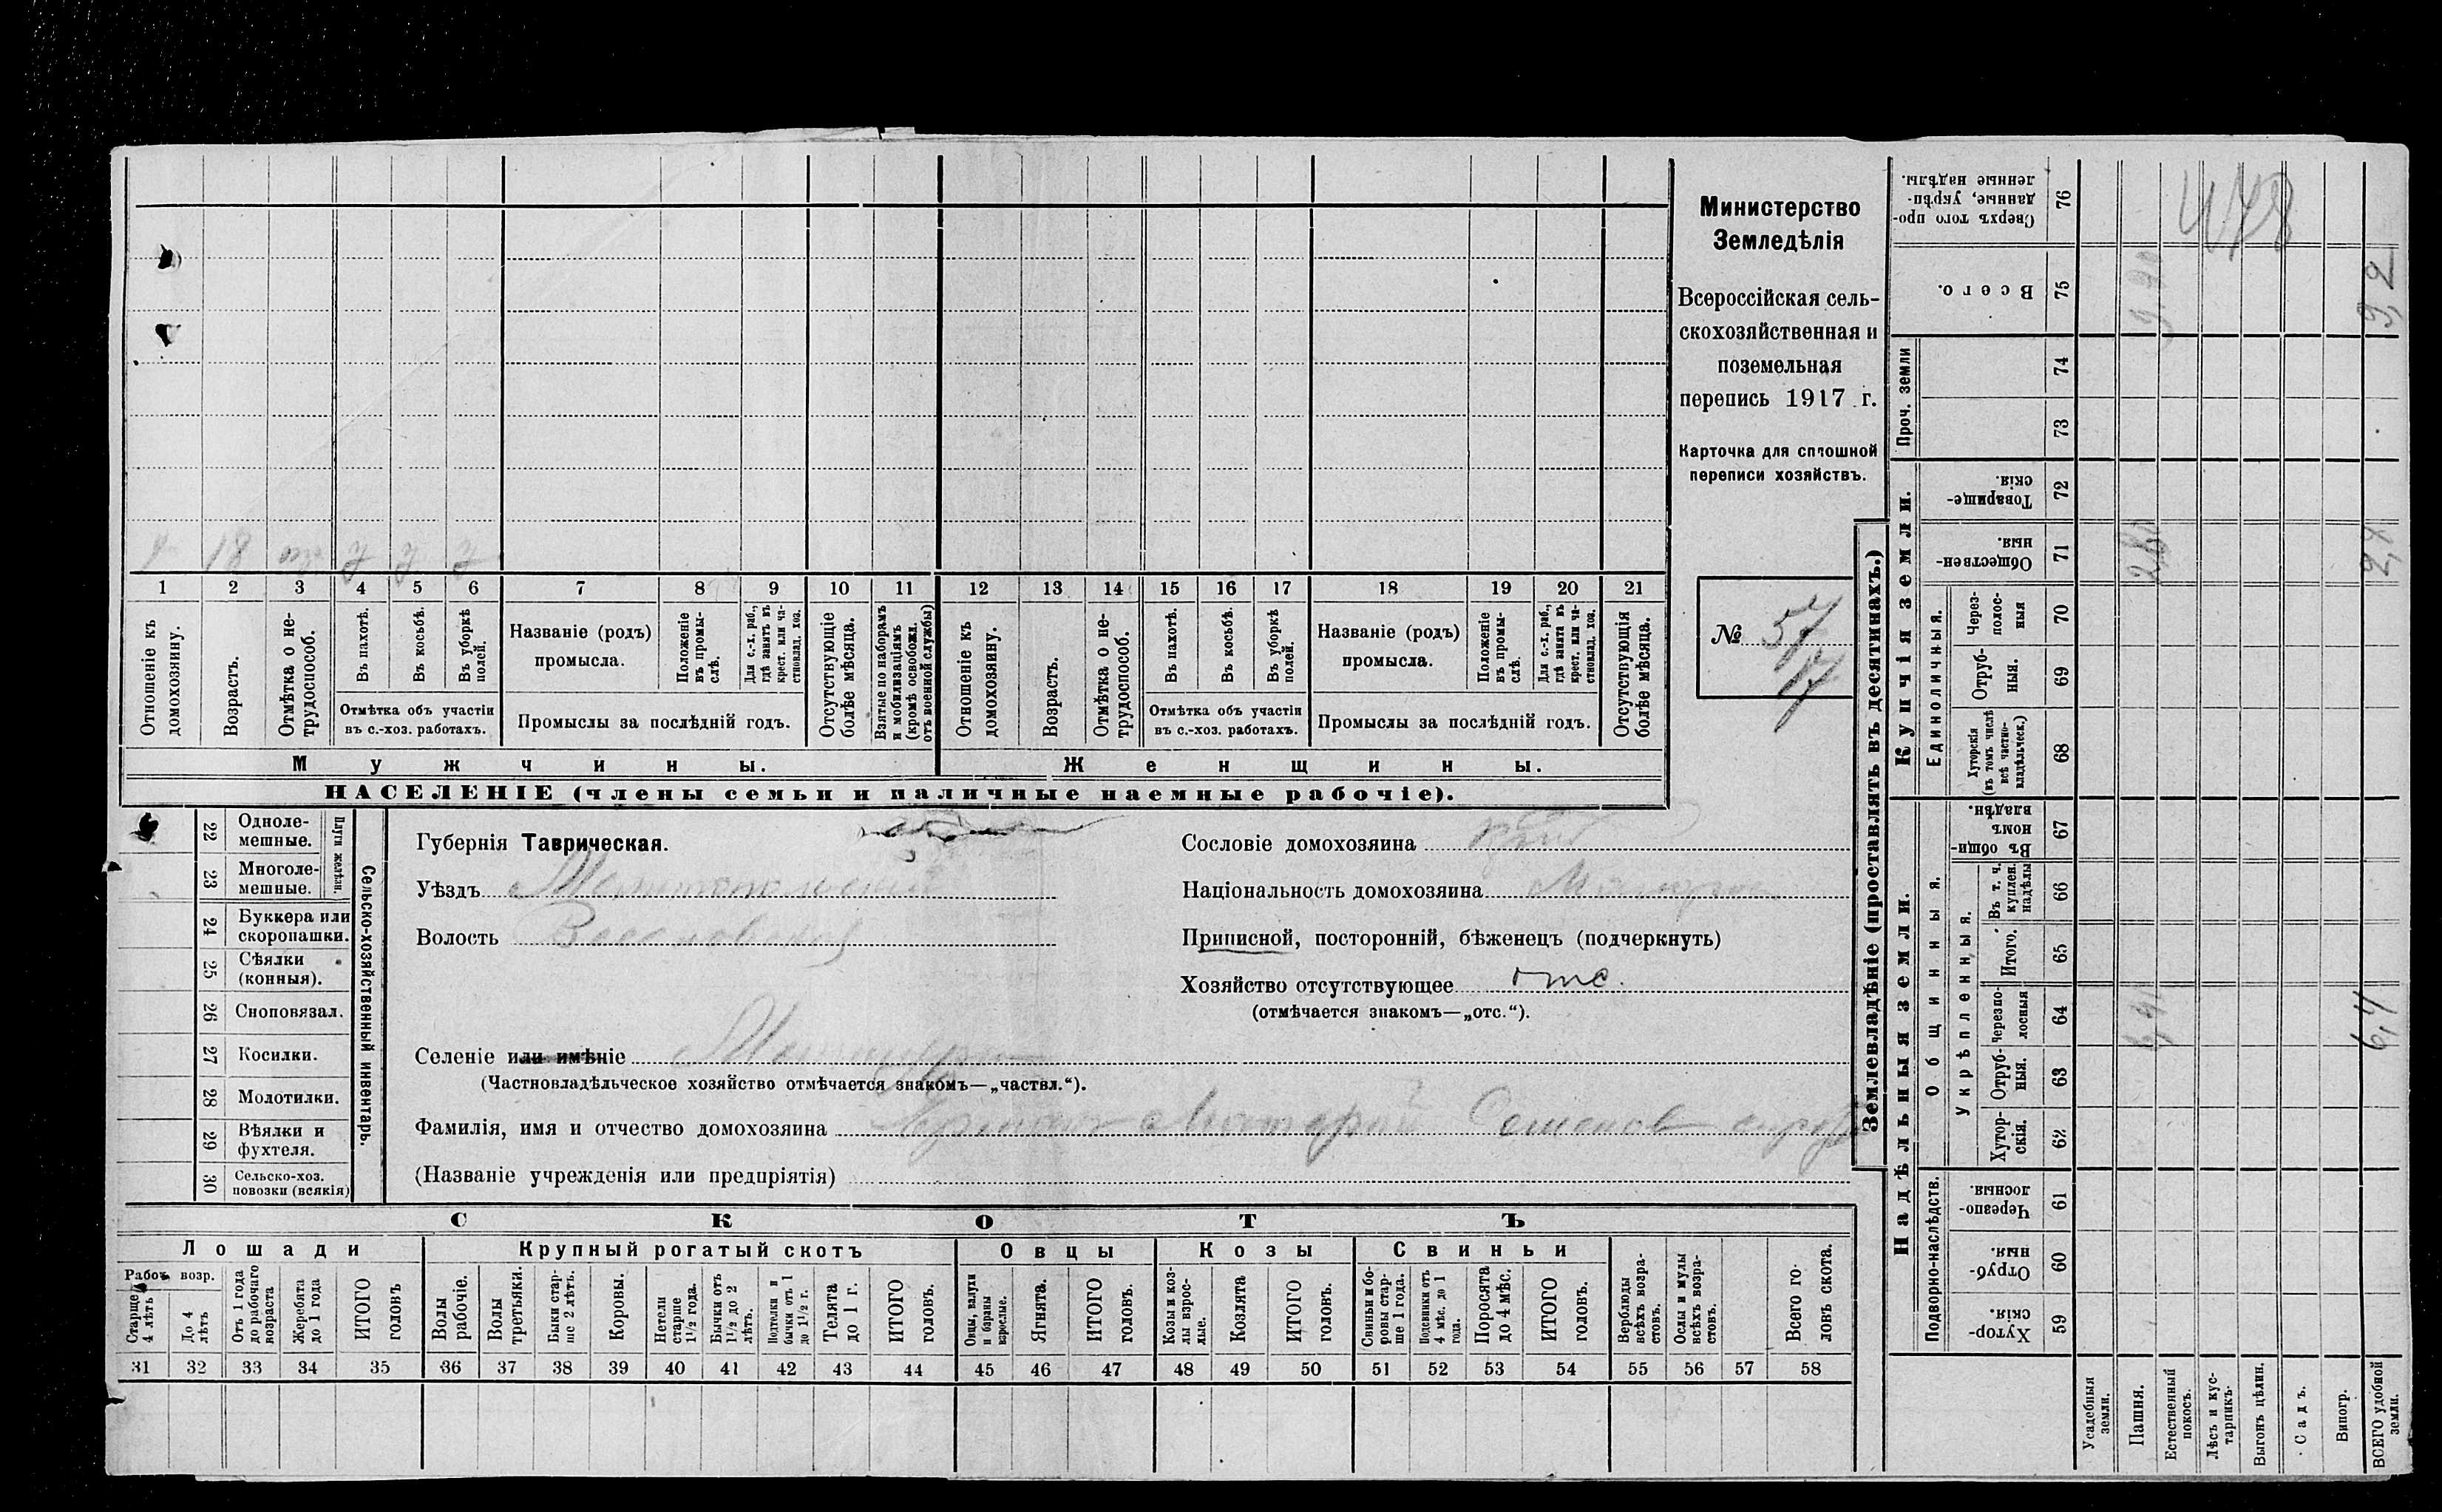 Министерство
Земледѣлія
Всероссійская сель-
скохозяйственная и
поземельная
перепись 1917 г.
Карточка для сплошной
переписи хозяйствъ.
№ 57
17
18
1 2 3 4 5 6 7 8 9 10 11 12 13 14 15 16 17 18 19 20 21
Отношеніе къ домохозяину.
Возрастъ.
Отмѣтка о не-трудоспособ.
Въ пахотѣ.
Въ косьбѣ.
Въ уборкѣ полей.
Отмѣтка объ участіи
въ с.-хоз. работахъ.
Названіе (родъ)
промысла.
Положеніе въ промы-слѣ.
Для с.-х. раб., гдѣ занятъ въ крест. или ча-стновлад. хоз.
Промыслы за послѣдній годъ.
Отсутствующіе болѣе мѣсяца.
Взятые по наборамъ и мобилизаціямъ (кромѣ освобожд. отъ военной службы)
Отношеніе къ домохозяину.
Возрастъ.
Отмѣтка о не-трудоспособ.
Въ пахотѣ.
Въ косьбѣ.
Въ уборкѣ полей.
Отмѣтка объ участіи
въ с.-хоз. работахъ.
Названіе (родъ)
промысла.
Положеніе въ промы-слѣ.
Для с.-х. раб., гдѣ занята въ крест. или ча-стновлад. хоз.
Промыслы за послѣдній годъ.
Отсутствующія болѣе мѣсяца.
Мужчины.
Женщины.
НАСЕЛЕНІЕ (члены семьи и наличные наемные рабочіе).
22 Одноле-мешные.
23 Многоле-мешные.
Плуги желѣзн.
24 Буккера или скоропашки.
25 Сѣялки (конныя).
26 Сноповязал.
27 Косилки.
28 Молотилки.
29 Вѣялки и фухтеля.
30 Сельско-хоз. повозки (всякія)
Сельско-хозяйственный инвентарь.
Губернія Таврическая.
Уѣздъ Мелитопольскій
Волость
Селеніе или имѣніе
(Частновладѣльческое хозяйство отмѣчается знакомъ—„частвл.“).
Фамилія, имя и отчество домохозяина
(Названіе учрежденія или предпріятія)
Сословіе домохозяина
Національность домохозяина Малорос
Приписной, посторонній, бѣженецъ (подчеркнуть)
Хозяйство отсутствующее отс.
(отмѣчается знакомъ—„отс.“).
СКОТЪ
Лошади
Крупный рогатый скотъ
Овцы
Козы
Свиньи
Рабоч. возр.
Старше 4 лѣтъ
До 4 лѣтъ
Отъ 1 года до рабочаго возраста
Жеребята до 1 года
ИТОГО головъ
Волы рабочіе.
Волы третьяки.
Быки стар-ше 2 лѣтъ.
Коровы.
Нетели старше 1½ года.
Бычки отъ 1½ до 2 лѣтъ.
Подтелки и бычки отъ 1 до 1½ г.
Телята до 1 г.
ИТОГО головъ.
Овцы, валухи и бараны взрослые.
Ягнята.
ИТОГО головъ.
Козы и коз-лы взрос-лые.
Козлята
ИТОГО головъ.
Свиньи и бо-ровы стар-ше 1 года.
Подсвинки отъ 4 мѣс. до 1 года.
Поросята до 4 мѣс.
ИТОГО головъ.
Верблюды всѣхъ возра-стовъ.
Ослы и мулы всѣхъ возра-стовъ.
Всего го-ловъ скота.
31 32 33 34 35 36 37 38 39 40 41 42 43 44 45 46 47 48 49 50 51 52 53 54 55 56 57 58
Землевладѣніе (проставлять въ десятинахъ.)
Надѣльныя земли.
Купчія земли.
Проч. земли
Подворно-наслѣдств.
Общинныя.
Укрѣпленныя.
Единоличныя.
Хутор-скія. 59
Отруб-ныя. 60
Черезпо-лосныя. 61
Хутор-скія. 62
Отруб-ныя. 63
Черезпо-лосныя 64
Итого. 65
Въ т. ч. куплен. надѣлы 66
Въ общи-номъ владѣн. 67
Хуторскія (въ томъ числѣ всѣ частно-владѣльческ.) 68
Отруб-ныя. 69
Через-полос-ныя 70
Обществен-ныя. 71
Товарище-скія. 72
73
74
Всего. 75
Сверхъ того про-данные, укрѣп-ленные надѣлы. 76
Усадебныя земли.
Пашня.
Естественный покосъ.
Лѣсъ и кус-тарникъ.
Выгонъ цѣлин.
Садъ.
Виногр.
ВСЕГО удобной земли.
478
9,2
6,4